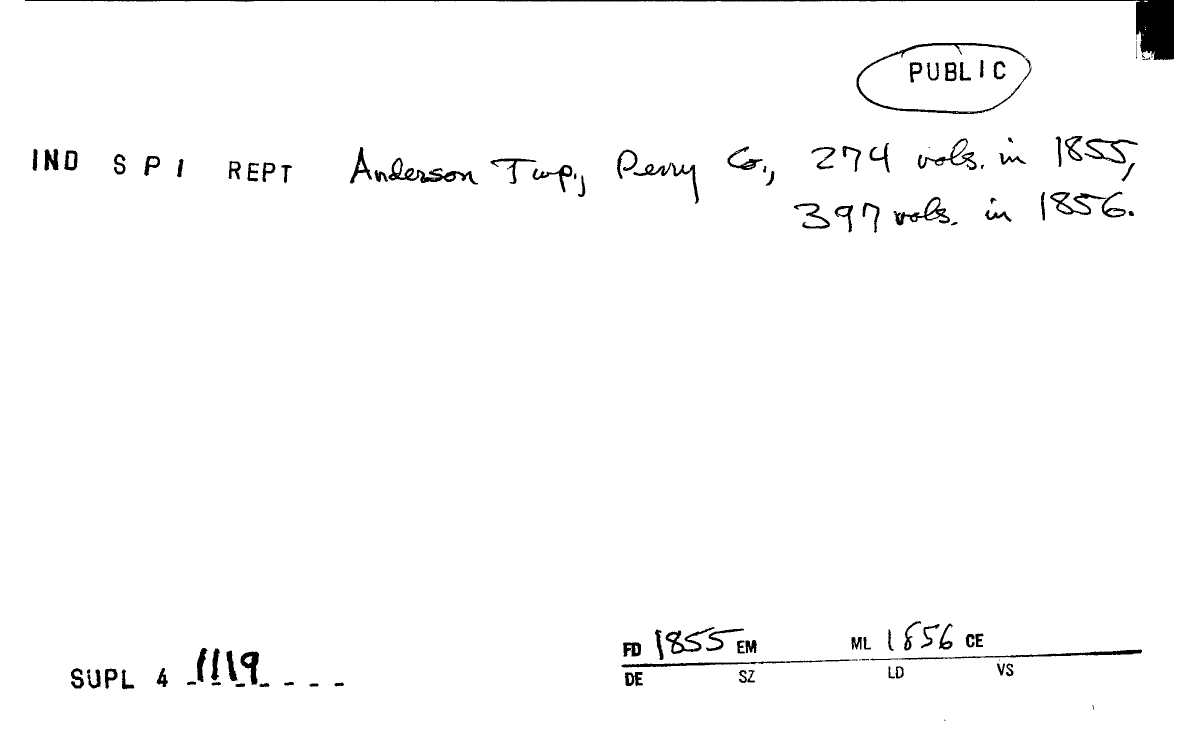 PUBLIC
IND S P I REPT Anderson Twp., Perry Co., 274 vols. in 1855,
397 vols. in 1856.
FD 1855 EM ML 1856 CE
SUPL 4 1119
DE SZ LD VS